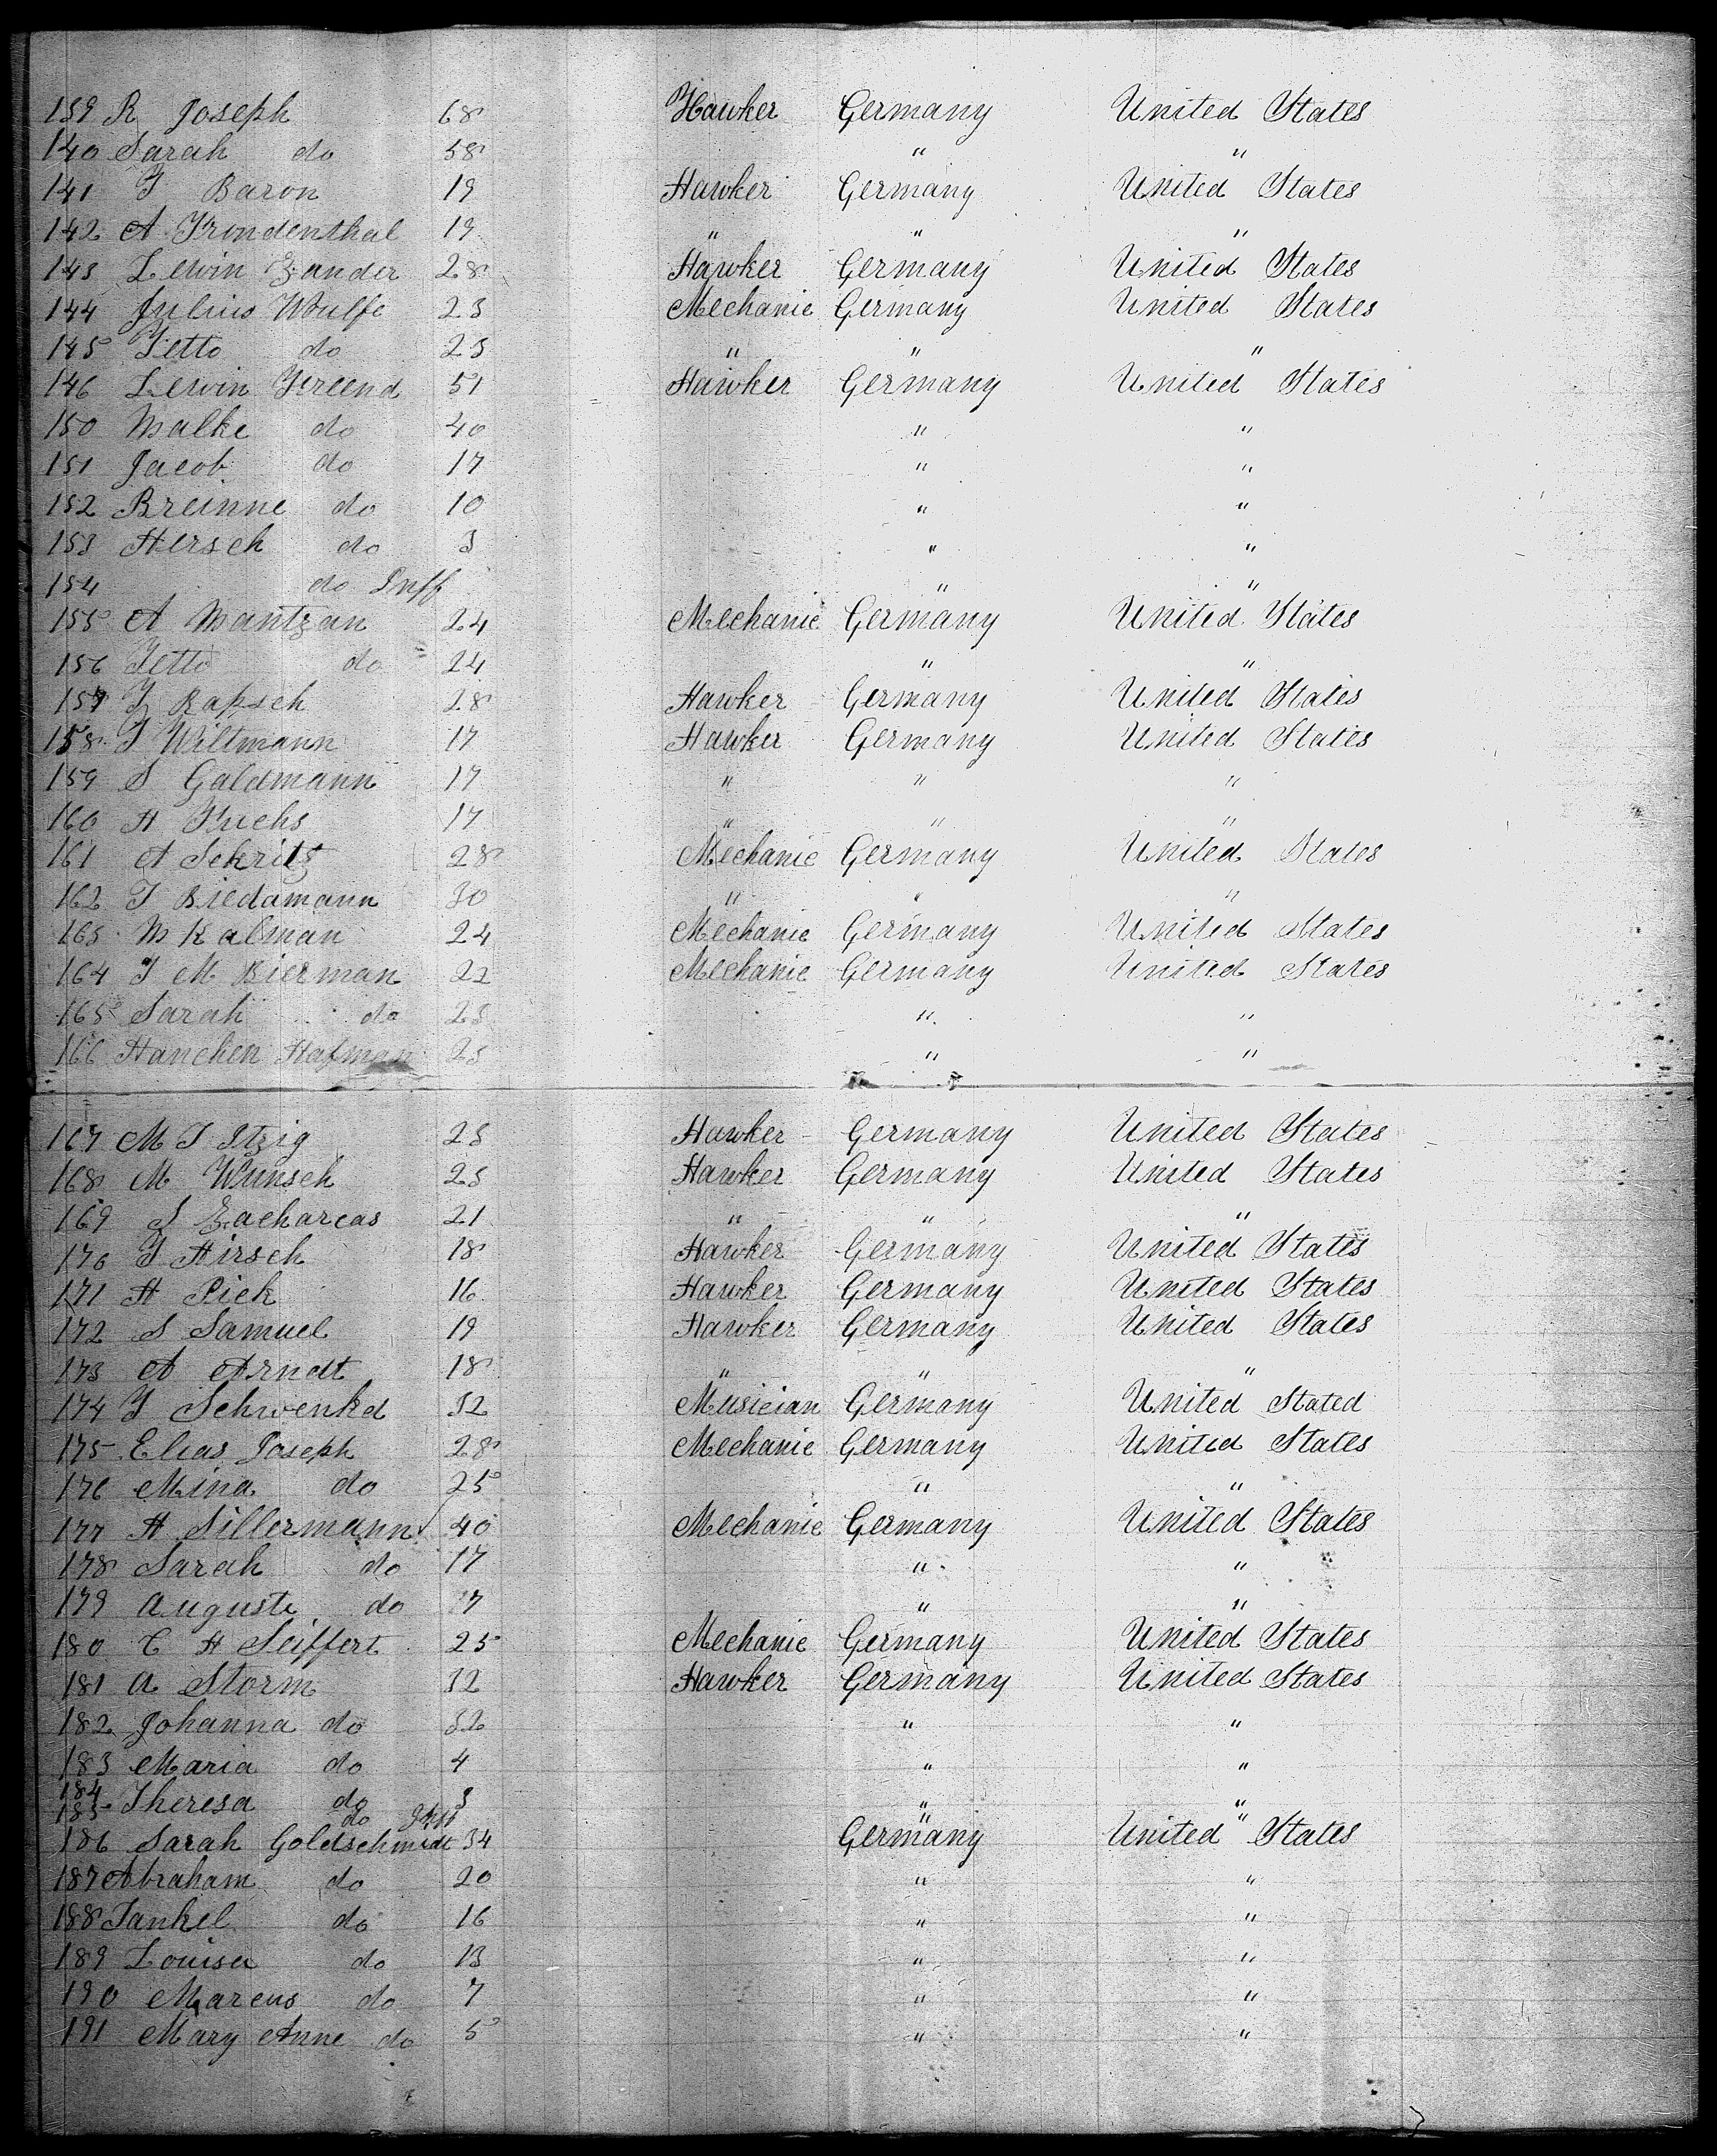 139 R Joseph 68 Hawker Germany United States
140 Sarah do 58 " "
141 J Baron 19 Hawker Germany United States
142 A Frondenthal 19 " " "
143 Lewin Zander 28 Hawker Germany United States
144 Julius Wulfe 23 Mechanic Germany United States
145 Jette do 23 " " "
146 Lewin Freend 51 Hawker Germany United States
150 Malke do 40 " "
151 Jacob do 17 " "
152 Breinne do 10 " "
153 Hersch do 3 " "
154 do Inff " "
155 A Mantzan 24 Mechanic Germany United States
156 Jette do 24 " "
157 J Rapsch 28 Hawker Germany United States
158 J Wiltmann 17 Hawker Germany United States
159 S Galdmann 17 " " "
160 H Fuchs 17 " " "
161 A Sekritz 28 Mechanic Germany United States
162 J Biedamann 30 " " "
163 M Kalman 24 Mechanic Germany United States
164 J M Bierman 22 Mechanic Germany United States
165 Sarah do 23 " "
166 Hanchen Hafman 23 " "
167 M J Itzig 23 Hawker Germany United States
168 M Wunsch 23 Hawker Germany United States
169 S Zacharcas 21 " " "
170 J Hirsch 18 Hawker Germany United States
171 H Pick 16 Hawker Germany United States
172 S Samuel 19 Hawker Germany United States
173 A Arndt 18 " " "
174 J Schwenkd 32 Musician Germany United Stated
175 Elias Joseph 28 Mechanic Germany United States
176 Mina do 25 " "
177 H Sillermann 40 Mechanic Germany United States
178 Sarah do 17 " "
179 Auguste do 7 " "
180 C H Seiffert 25 Mechanic Germany United States
181 A Storm 32 Hawker Germany United States
182 Johanna do 32 " "
183 Maria do 4 " "
184 Theresa do 3 " "
185 do Inff " "
186 Sarah Goldschmidt 34 Germany United States
187 Abraham do 20 " "
188 Jankel do 16 " "
189 Louisa do 13 " "
190 Marcus do 7 " "
191 Mary Anne do 5 " "